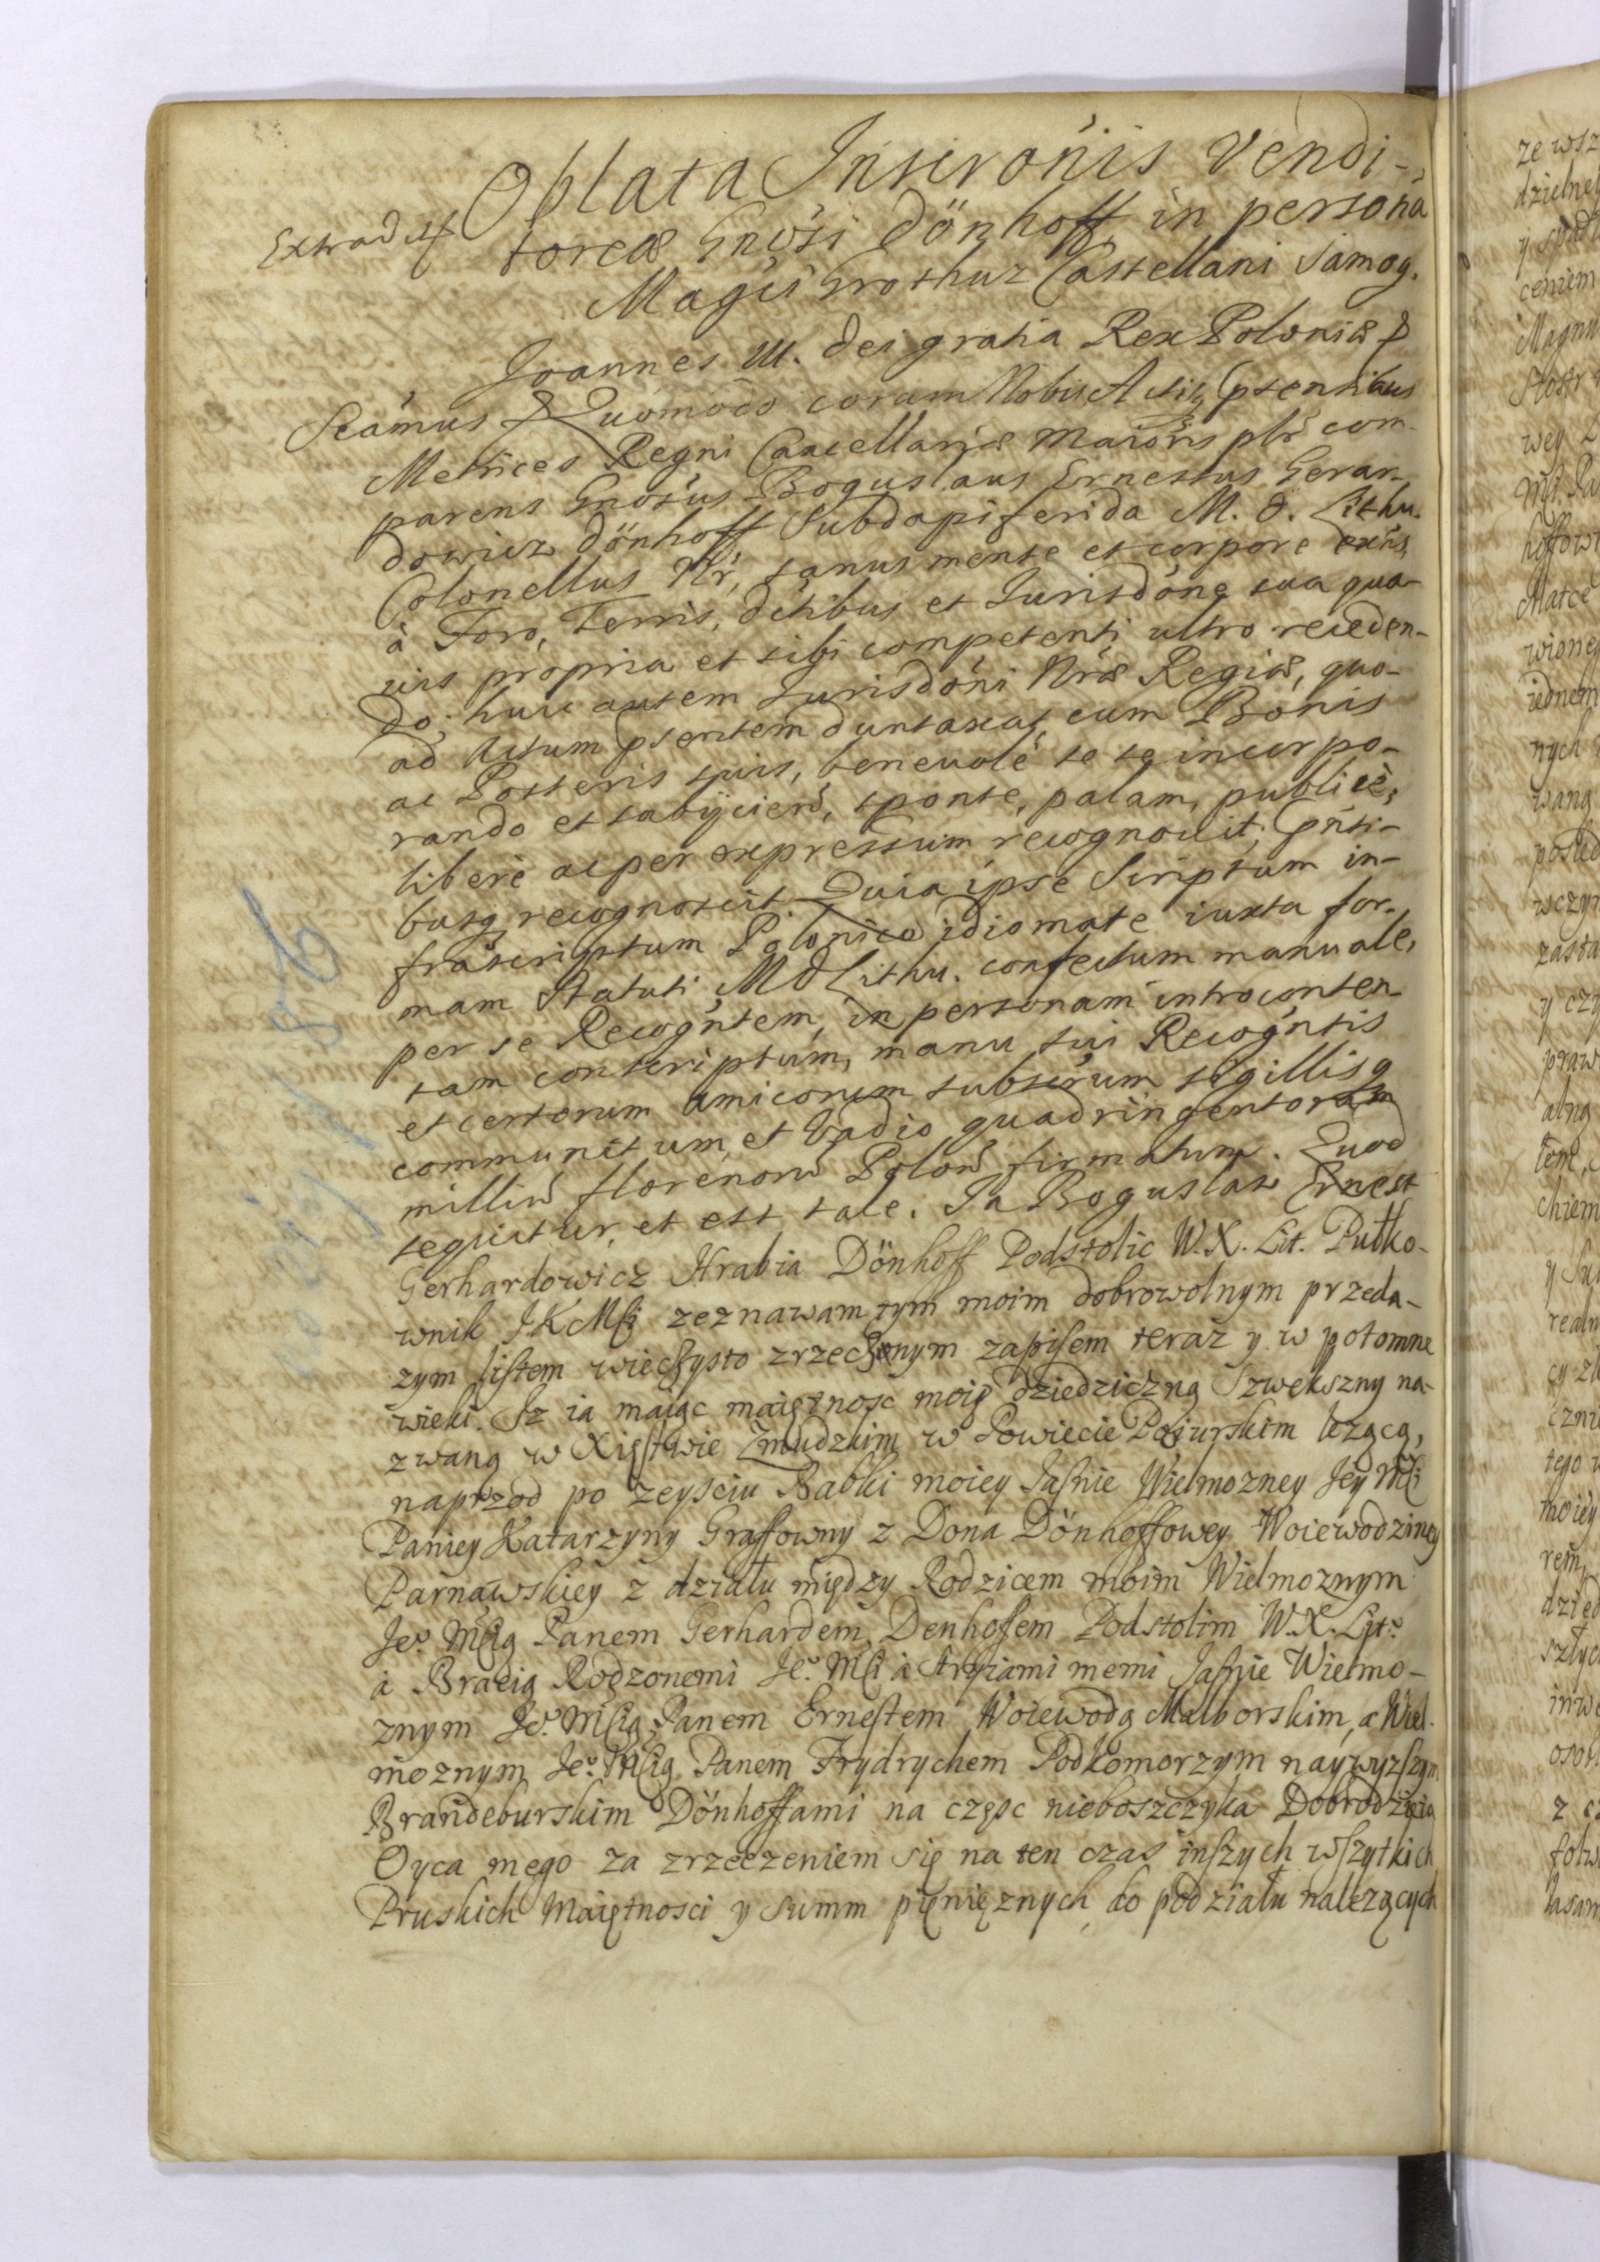 Oblata Inscronis Vendi-
Extradit
toreæ Gnosi Dönhoff in persona
Magci Grothuz Castellani Samog.
Joannes III. Dei gratia Rex Poloniæ &
Scamus & Quomodo coram Nobis Actisq ptentibus
Metrices Regni Cancellariæ Maioris plr com-
parens Gnosus Boguslaus Ernestus Gerar-
dowicz Dönhoff Subdapiferida M. D. Lithu.
Colonellus Nr, sanus mente et corpore exns
à Foro, Terris, dctibus et Jurisdone sua qua-
uis propria et sibi competenti ultro receden-
do, huic autem Jurisdoni Nræ Regiæ, quo-
ad Actum psentem duntaxat, cum Bonis
ac Posteris suis, beneuolè se se incorpo-
rando et subijciend, sponte, palam, publicè,
liberè ac per expressum recognouit, pnti-
busq recognoscit. Quia ipse Scriptum in-
frascriptum Polonico idiomate iuxta for-
mam Statuti M D Lithu. confectum manuale,
per se Recogntem, in personam introconten-
tam conscriptum, manu sui Recogntis
et certorum amicorum subscrum sigillisq
communitum, et Vadio quadringentorum
milliu florenoru Polon firmatum. Quod
sequitur, et est tale. Ja Bogusław Ernest
Gerhardowicz Hrabia Dönhoff Podstolic W. X. Lit. Pułko-
wnik JKMsci zeznawam tym moim dobrowolnym przeda-
zym listem wieczysto zrzeczonym zapisem teraz y w potomne
wieki. Jz ia maiąc maiętnosc moię dziedziczną Szwekszny na-
zwaną w Xięstwie Zmudzkim w Powiecie Poiurskim lezącą,
naprzod po zeysciu Babki moiey Jasnie Wielmozney Jey Msci
Paniey Katarzyny Graffowny z Dona Dönhoffowey Woiewodziney
Parnawskiey z działu między Rodzicem moim Wielmoznym
Je° Mscią Panem Gerhardem Denhofem Podstolim W. X. Lit°
à Bracią Rodzonemi Je° Msci à Stryiami memi Jasnie Wielmo-
znym Je° Mscią Panem Ernestem Woiewodą Malborskim, a Wiel-
moznym Je° Mscią Panem Frydrychem Podkomorzym naywyzszym
Brandeburskim Dönhoffami na częsc nieboszczyka Dobrodzieia
Oyca mego za zrzeczeniem się na ten czas inszych wszytkich
Pruskich Maiętnosci y summ pięnięznych, do podziału nalezących